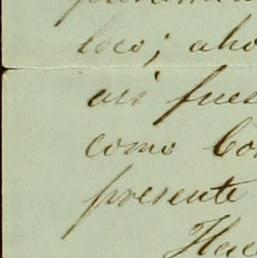 loco; aho
asi fues
como Con
presente
Hac